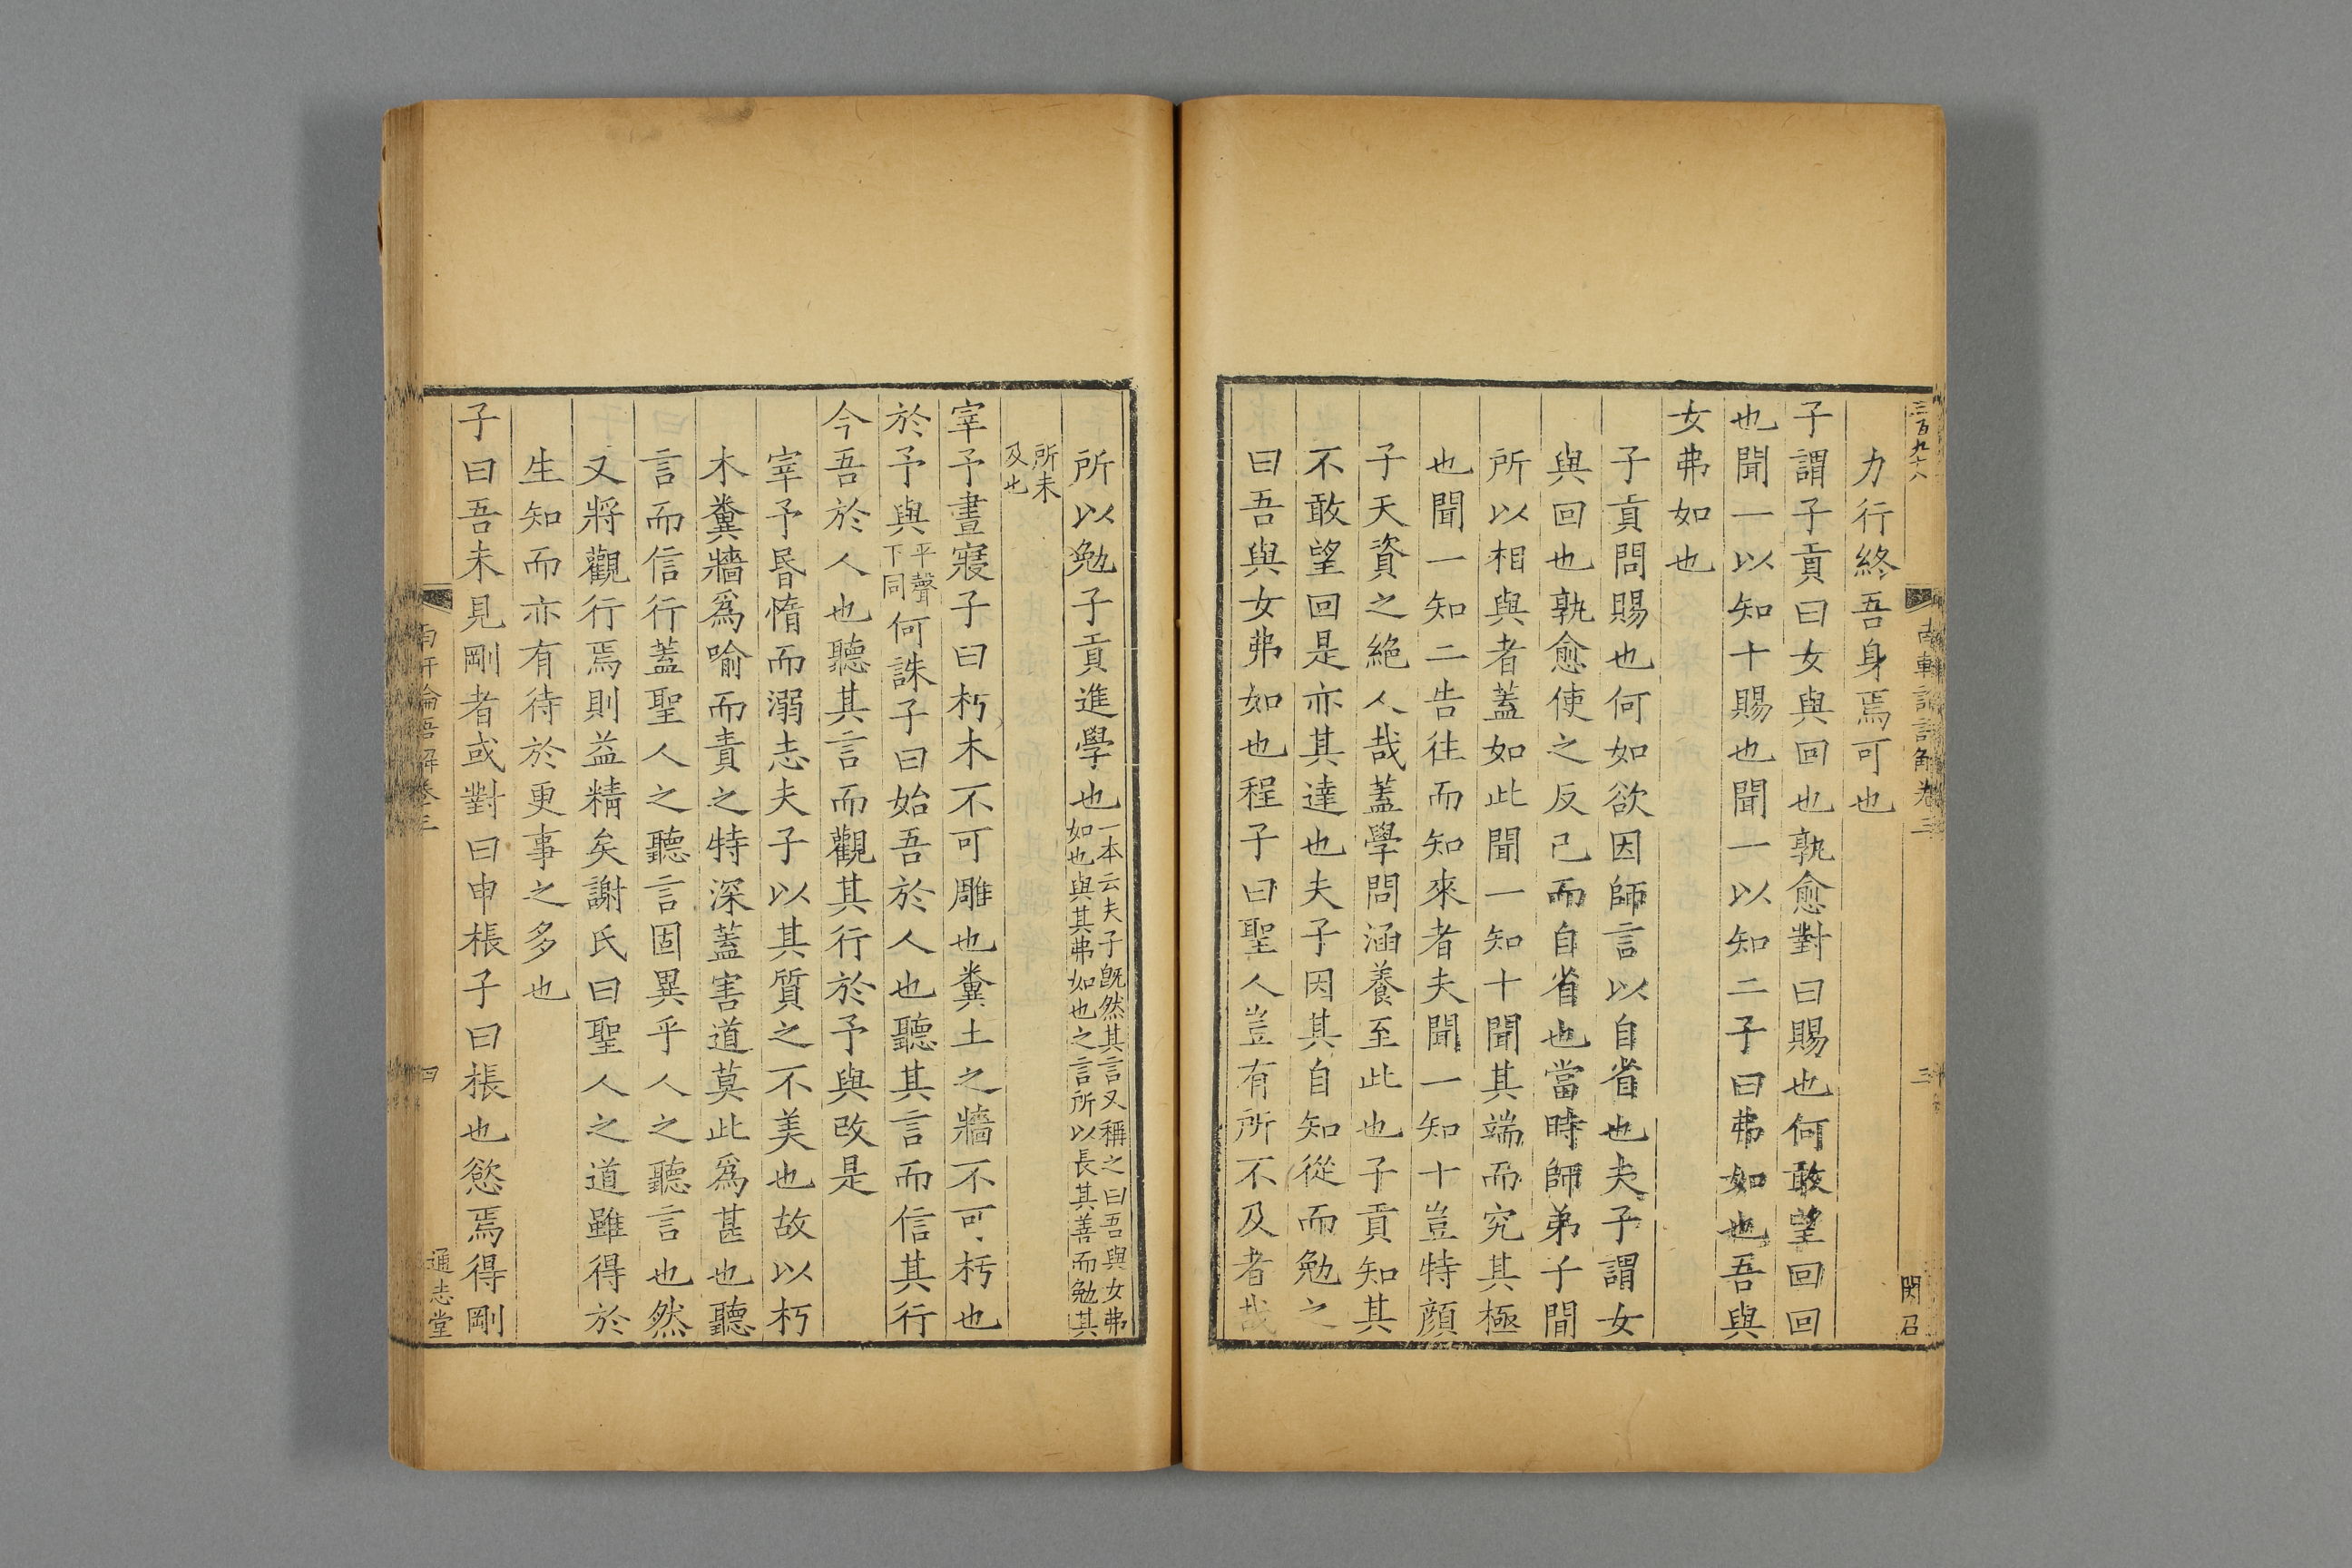 三百九十八
南軒論語解卷三
三
閔召
力行終吾身焉可也
子謂子貢曰女與回也孰愈對曰賜也何敢望回回
也聞一以知十賜也聞一以知二子曰弗如也吾與
女弗如也
子貢問賜也何如欲因師言以自省也夫子謂女
與回也孰愈使之反己而自省也當時師弟子間
所以相與者蓋如此聞一知十聞其端而究其極
也聞一知二告往而知來者夫聞一知十豈特顏
子天資之絕人哉蓋學問涵養至此也子貢知其
不敢望回是亦其達也夫子因其自知從而勉之
曰吾與女弗如也程子曰聖人豈有所不及者哉
所以勉子貢進學也一本云夫子旣然其言又稱之曰吾與女弗
如也與其弗如也之言所以長其善而勉其
所未
及也
宰予晝寢子曰朽木不可雕也糞土之牆不可杇也
於予與平聲下同何誅子曰始吾於人也聽其言而信其行
今吾於人也聽其言而觀其行於予與改是
宰予昬惰而溺志夫子以其質之不美也故以朽
木糞牆爲喻而責之特深蓋害道莫此爲甚也聽
言而信行蓋聖人之聽言固異乎人之聽言也然
又將觀行焉則益精矣謝氏曰聖人之道雖得於
生知而亦有待於更事之多也
子曰吾未見剛者或對曰申棖子曰棖也慾焉得剛
南軒論語解卷三
四
通志堂